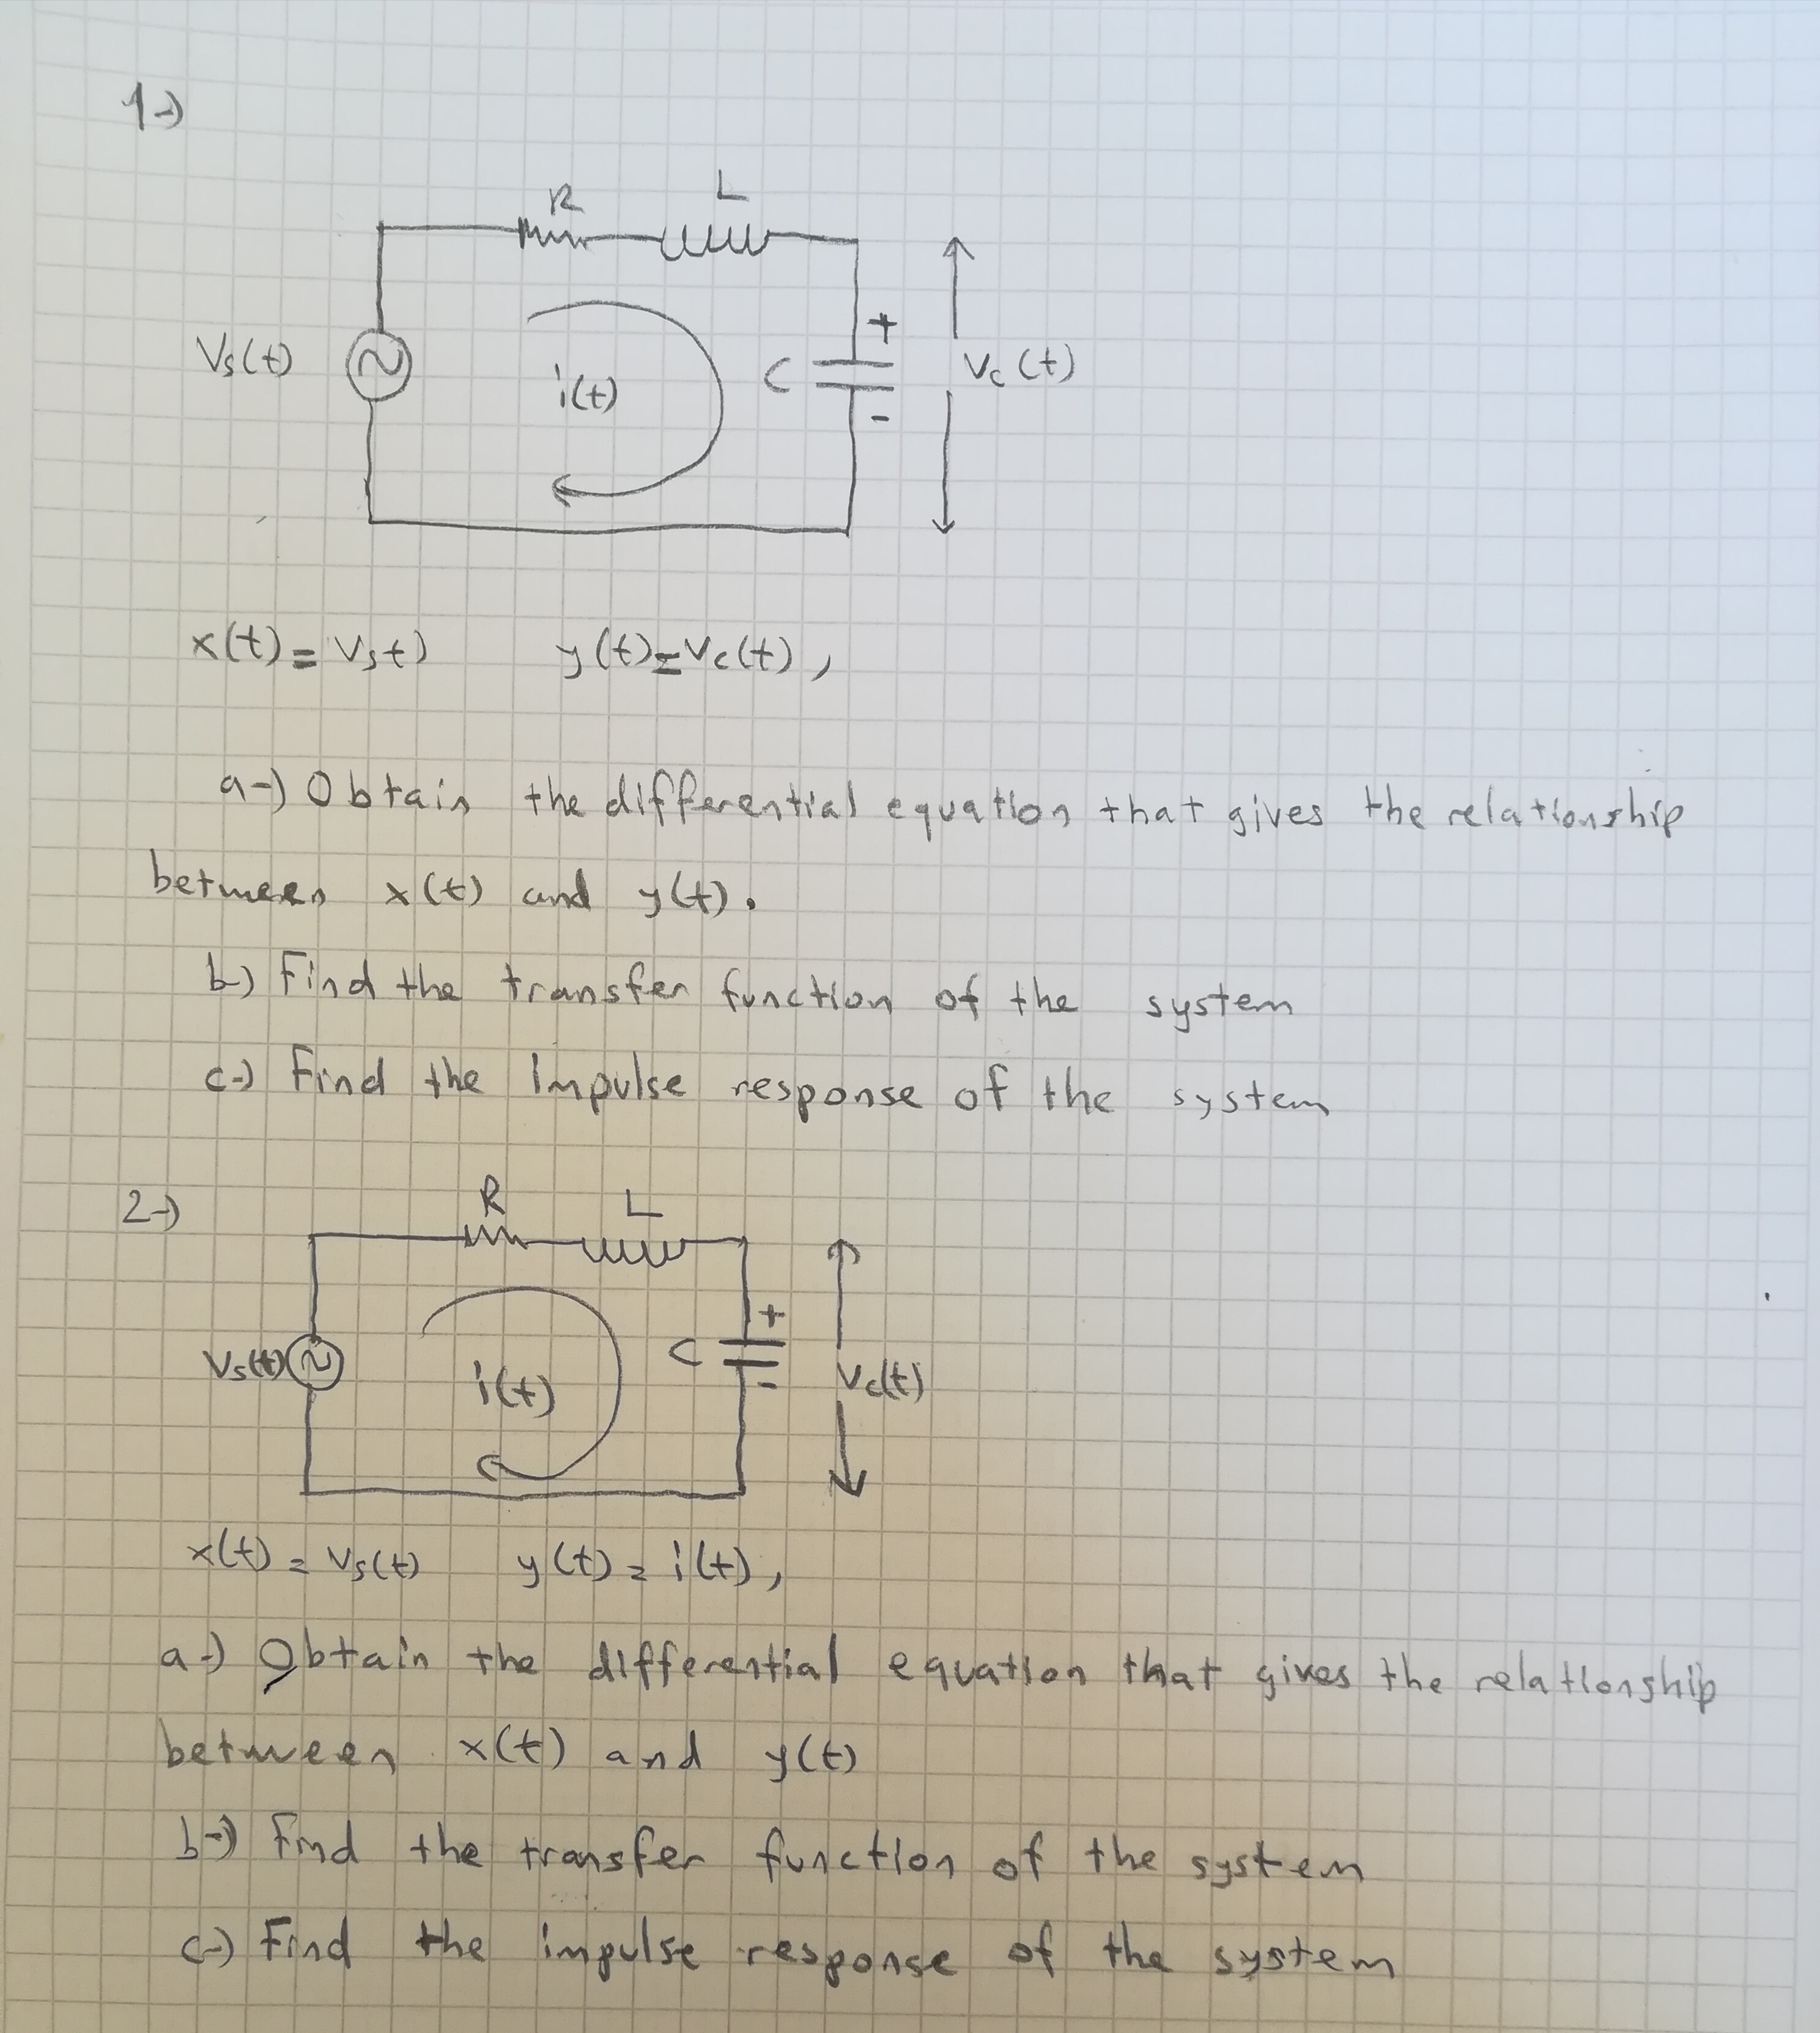 1-)
R L
Vs(t) i(t) C + - Vc(t)
x(t) = Vst) y(t) = Vc(t),
a-) Obtain the differential equation that gives the relationship
between x(t) and y(t).
b-) Find the transfer function of the system
c-) Find the Impulse response of the system
2-)
R L
Vs(t) i(t) C + - Vc(t)
x(t) = Vs(t) y(t) = i(t),
a-) Obtain the differential equation that gives the relationship
between x(t) and y(t)
b-) Find the transfer function of the system
c-) Find the impulse response of the system